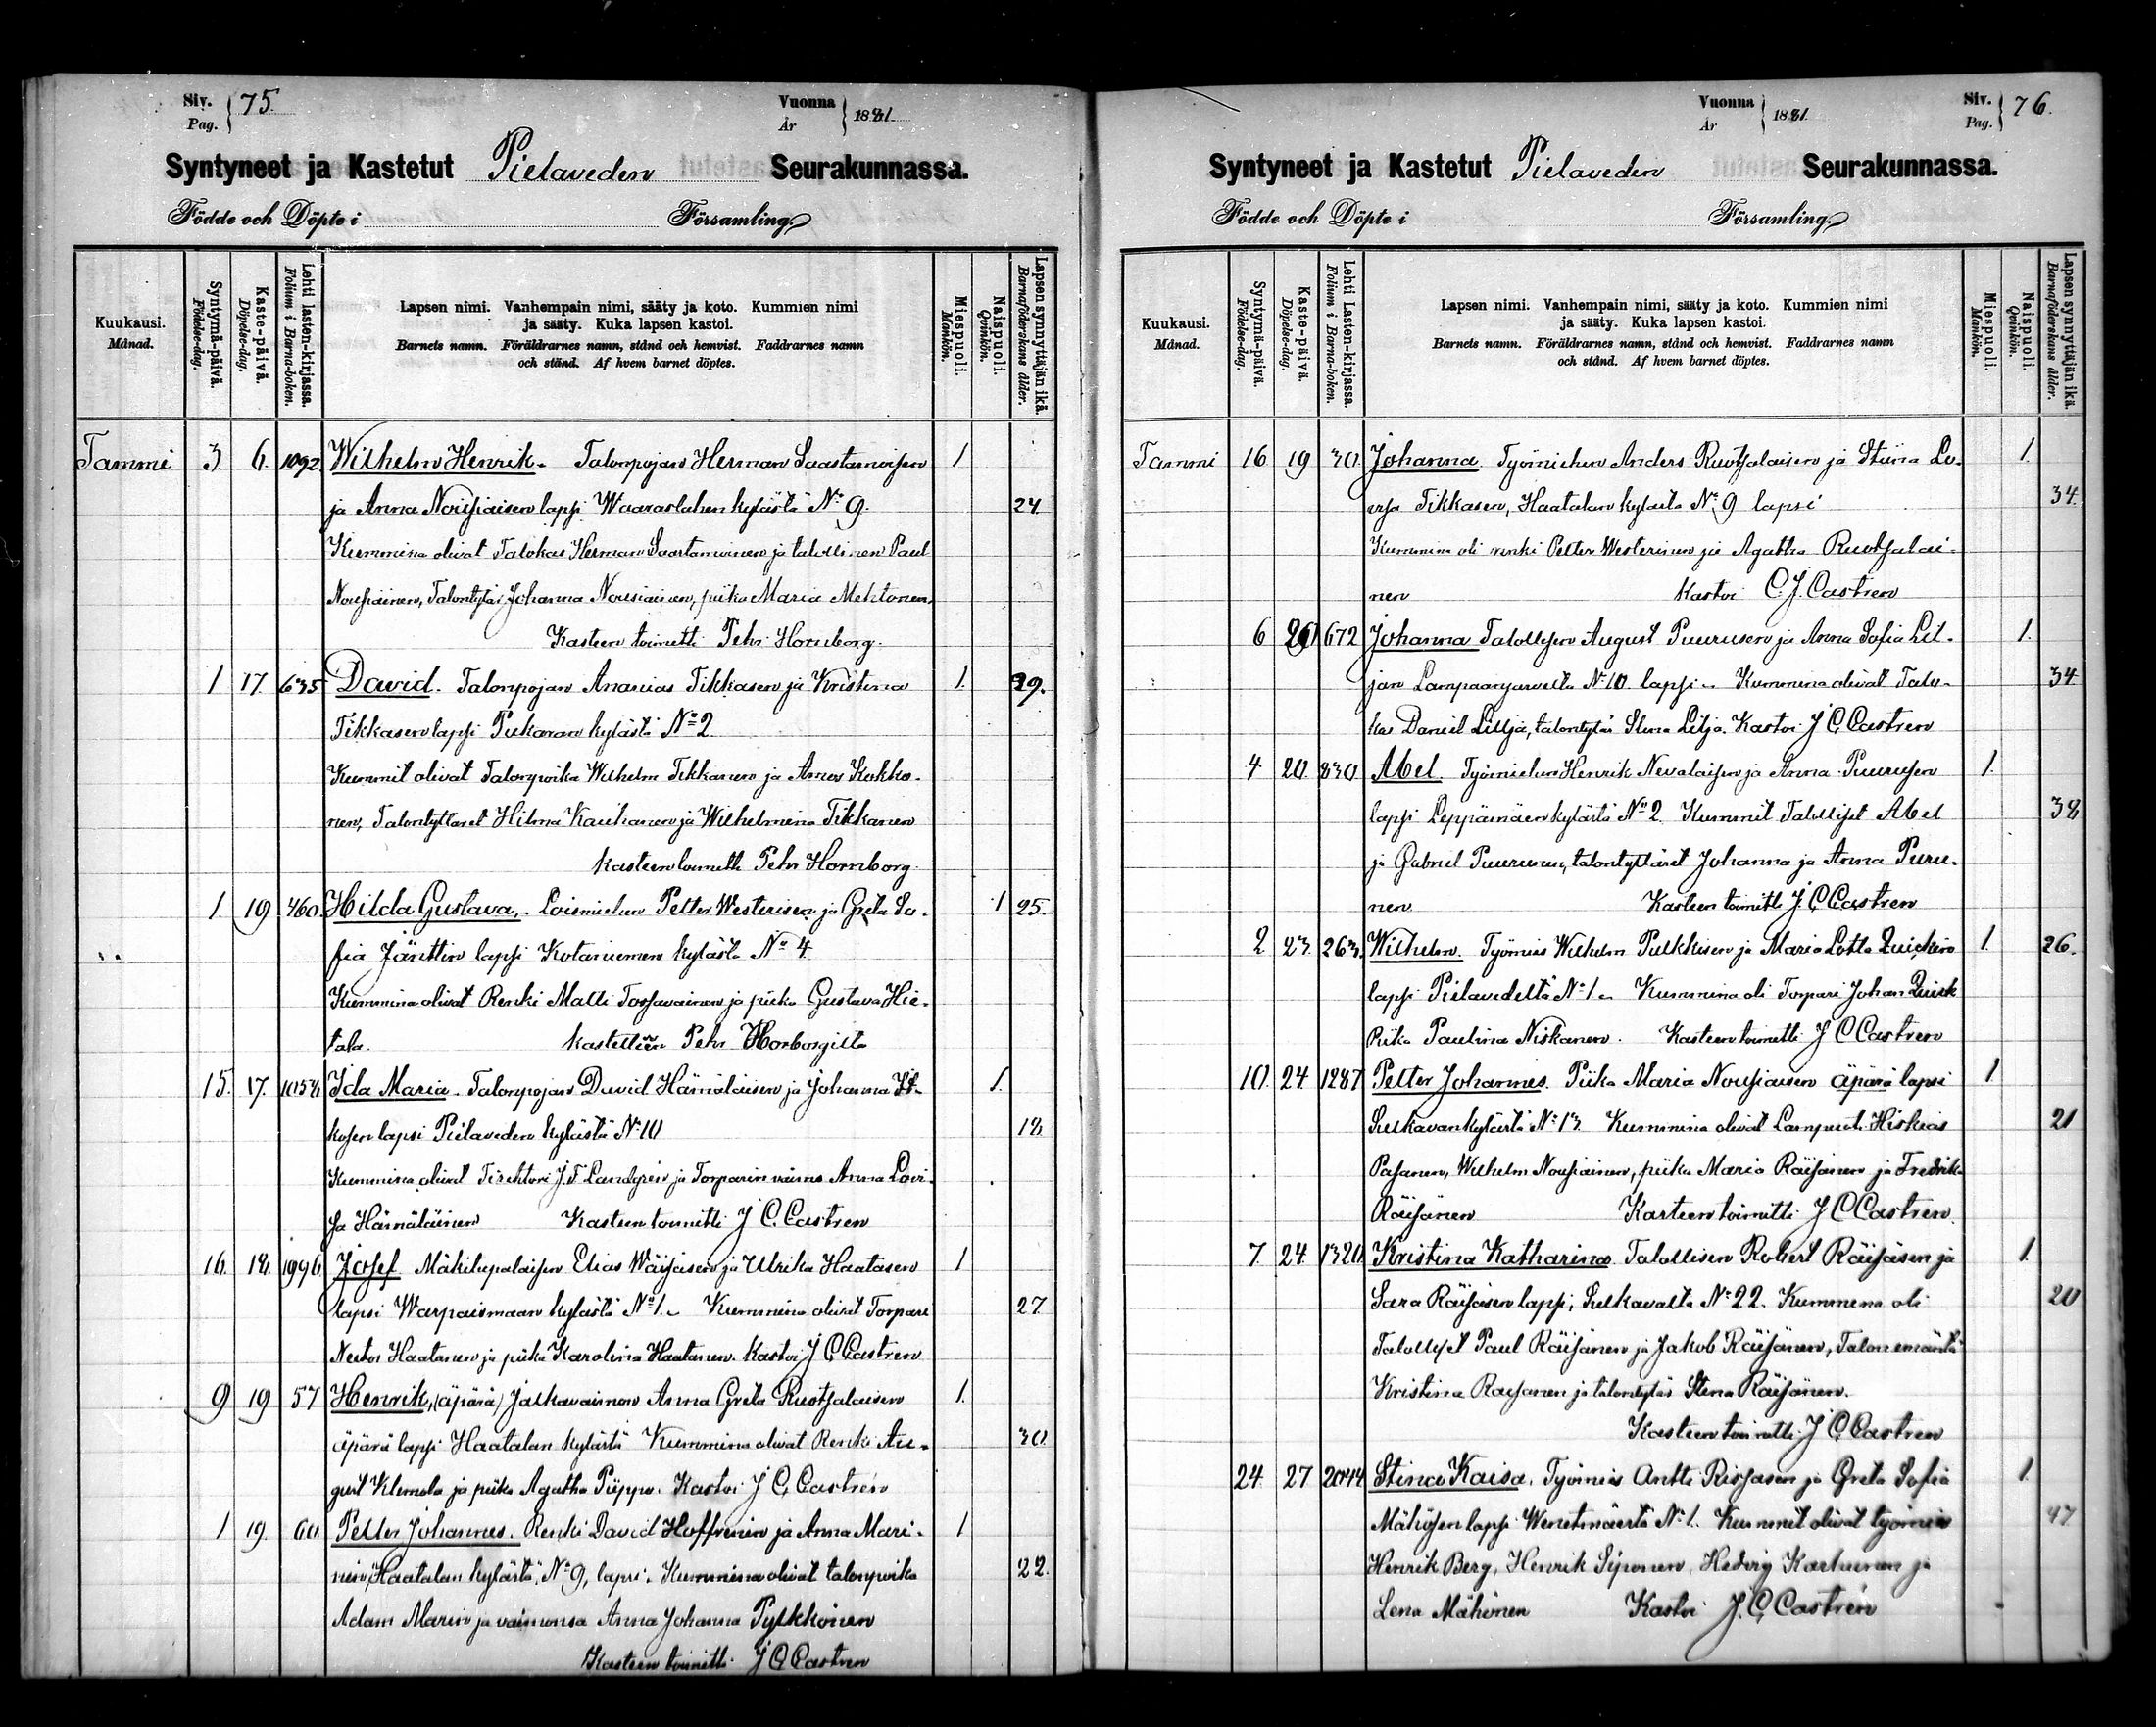 Siv. Pag. 75.
Vuonna År 1881.
Syntyneet ja Kastetut Pielaveden Seurakunnassa.
Födde och Döpte i Församling.
Kuukausi. Månad.
Syntymä-päivä. Födelse-dag.
Kaste-päivä. Döpelse-dag.
Lehti lasten-kirjassa. Folium i Barna-boken.
Lapsen nimi. Vanhempain nimi, sääty ja koto. Kummien nimi
ja sääty. Kuka lapsen kastoi.
Barnets namn. Föräldrarnes namn, stånd och hemvist. Faddrarnes namn
och stånd. Af hvem barnet döptes.
Miespuoli. Mankön.
Naispuoli. Qvinkön.
Lapsen synnyttäjän ikä. Barnaföderskans ålder.
Tammi 3 6. 1092 Wilhelm Henrik. Talonpojan Herman Saastamoisen 1
ja Anna Nousiaisen lapsi Waaraslahen kylästä No 9. 24.
Kummina olivat Talokas Herman Saastamoinen ja talollinen Paul
Nousiainen, Talontytär Johanna Nousiainen, piika Maria Mehtonen.
Kasteen toimitti Pehr Hornborg.
1 17 635 David. Talonpojan Ananias Tikkasen ja Kristina 1. 29.
Tikkasen lapsi Pukaran kylästä No 2
Kummit olivat Talonpoika Wilhelm Tikkanen ja Amos Kokko-
nen, Talontyttäret Hilma Kauhanen ja Wilhelmina Tikkanen
Kasteen toimitti Pehr Hornborg.
1. 19 460. Hilda Gustava,- Loismiehen Petter Westerisen ja Greta So- 1 25.
fia Jänttin lapsi Kotaniemen kylästä No 4
Kummina olivat Renki Matti Torsavainen ja piika Gustava Hie-
tala. kastettiin Pehr Horborgilta
15. 17. 1058 Ida Maria. Talonpojan David Hämäläisen ja Johanna It- 1.
kosen lapsi Pielaveden kylästä No 10 18.
Kummina olivat Tirehtori J. F. Landgren ja Torparin vaimo Anna Lovi-
sa Hämäläinen Kasteen toimitti J C. Castren
16. 18. 1996 Josef. Mäkitupalaisen Elias Wäisäisen ja Ulrika Haatasen 1
lapsi Warpaismaan kylästä No 1. Kummina olivat Torpari 27
Nestor Haatanen ja piika Karolina Haatanen. Kastoi J C Castren
9 19 57 Henrik, (äpärä) Jalkavaimon Anna Greta Ruotsalaisen 1.
äpärä lapsi Haatalan kylästä Kummina olivat Renki Au- 30
gust Klemola ja piika Agatha Piippo. Kastoi J C, Castrén
1 19. 60. Petter Johannes. Renki David Hoffrenin ja Anna Mari- 1
nin, Haatalan kylästä, No 9, lapsi. Kummina olivat talonpoika 22.
Adam Marin ja vaimonsa Anna Johanna Pylkkönen
Kasteen toimitti J C, Castren
Vuonna År 1881.
Siv. Pag. 76.
Syntyneet ja Kastetut Pielaveden Seurakunnassa.
Födde och Döpte i Församling.
Kuukausi. Månad.
Syntymä-päivä. Födelse-dag.
Kaste-päivä. Döpelse-dag.
Lehti Lasten-kirjassa. Folium i Barna-boken.
Lapsen nimi. Vanhempain nimi, sääty ja koto. Kummien nimi
ja sääty. Kuka lapsen kastoi.
Barnets namn. Föräldrarnes namn, stånd och hemvist. Faddrarnes namn
och stånd. Af hvem barnet döptes.
Miespuoli. Mankön.
Naispuoli. Qvinkön.
Lapsen synnyttäjän ikä. Barnaföderskans ålder.
Tammi 16 19 30. Johanna. Työmiehen Anders Ruotsalaisen ja Stiina Lo- 1.
visa Tikkasen, Haatalan kylästä No 9 lapsi 34.
Kummina oli renki Petter Westerinen ja Agatha Ruotsalai-
nen Kastoi C. J. Castren
6 20 672 Johanna Talollisen August Puurusen ja Anna Sofia Lil- 1.
jan Lampaanjärveltä No 10. lapsi. Kummina olivat Talo- 34
kas Daniel Lillja, talontytär Stina Lilja. Kastoi J C, Castren
4 20. 830 Abel. Työmiehen Henrik Nevalaisen ja Anna Puurusen 1.
lapsi Leppämäen kylästä No 2. Kummit Talolliset Abel 38
ja Gabriel Puurunen, talontyttäret Johanna ja Anna Puru-
nen Kasteen toimitti J. C Castren
2 23. 263. Wilhelm. Työmies Wilhelm Pulkkisen ja Maria Lotta Quickin 1. 26.
lapsi Pielavedeltä No 1. Kummina oli Torpari Johan Quick
Piika Paulina Niskanen. Kasteen toimitti J C Castren
10. 24 1287 Petter Johannes. Piika Maria Nousiaisen äpärä lapsi 1
Sulkavan kylästä No 13. Kummina olivat Lampuoti Hiskias 21
Pasanen, Wilhelm Nousiainen, piika Maria Räisänen ja Fredrika
Räisänen Kasteen toimitti J C Castren.
7. 24. 1320. Kristina Katharina. Talollisen Robert Räisäsen ja 1.
Sara Räisäsen lapsi, Sulkavalta No 22. Kummina oli 20
Talolliset Paul Räisänen ja Jakob Räisänen, Talon emäntä
Kristina Räisänen ja talontytär Stina Räisänen.
Kasteen toimitti J C, Castren
24 27 2044 Stina Kaisa. Työmies Antti Rissasen ja Greta Sofia 1.
Mähösen lapsi Wenetmäestä No 1. Kummit olivat työmies 47.
Henrik Berg, Henrik Siponen, Hedvig Karhunen ja
Lena Mähönen Kastoi J. C, Castrén